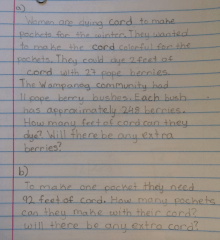 a)
Women are dying cord to make
pockets for the winter. They wanted
to make the cord colorful for the
pockets. They could dye 2 feet of
cord with 27 pope berries.
The Wampanoag community had
11 pope berry bushes. Each bush
has approximately 248 berries.
How many feet of cord can they
dye? Will there be any extra
berries?
b)
To make one pocket they need
92 feet of cord. How many pockets
can they make with their cord?
Will there be any extra cord?